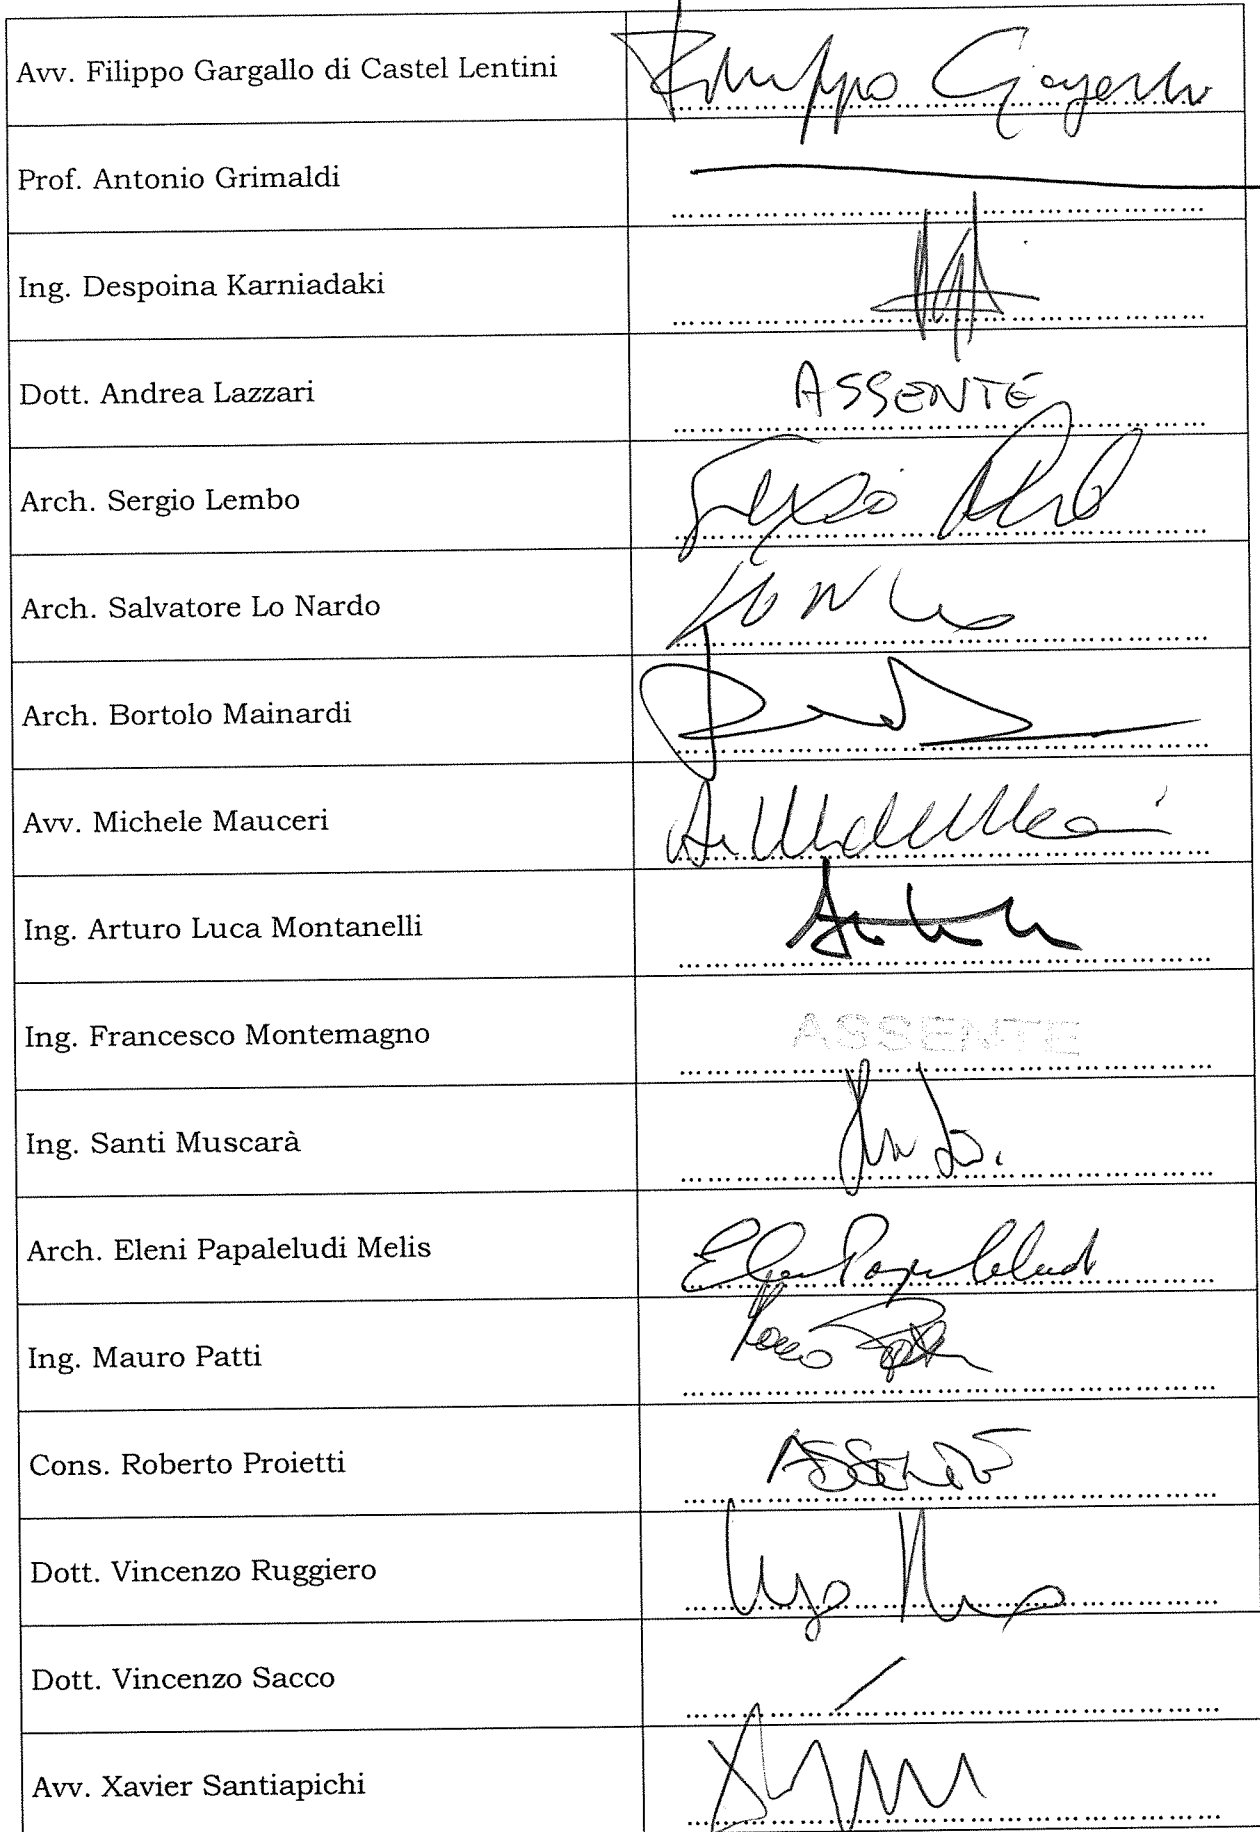 Avv. Filippo Gargallo di Castel Lentini
Filippo Gargallo
Prof. Antonio Grimaldi
Ing. Despoina Karniadaki
Dott. Andrea Lazzari
ASSENTE
Arch. Sergio Lembo
Arch. Salvatore Lo Nardo
Arch. Bortolo Mainardi
Avv. Michele Mauceri
Ing. Arturo Luca Montanelli
Ing. Francesco Montemagno
ASSENTE
Ing. Santi Muscarà
Arch. Eleni Papaleludi Melis
Ing. Mauro Patti
Cons. Roberto Proietti
ASSENTE
Dott. Vincenzo Ruggiero
Dott. Vincenzo Sacco
Avv. Xavier Santiapichi